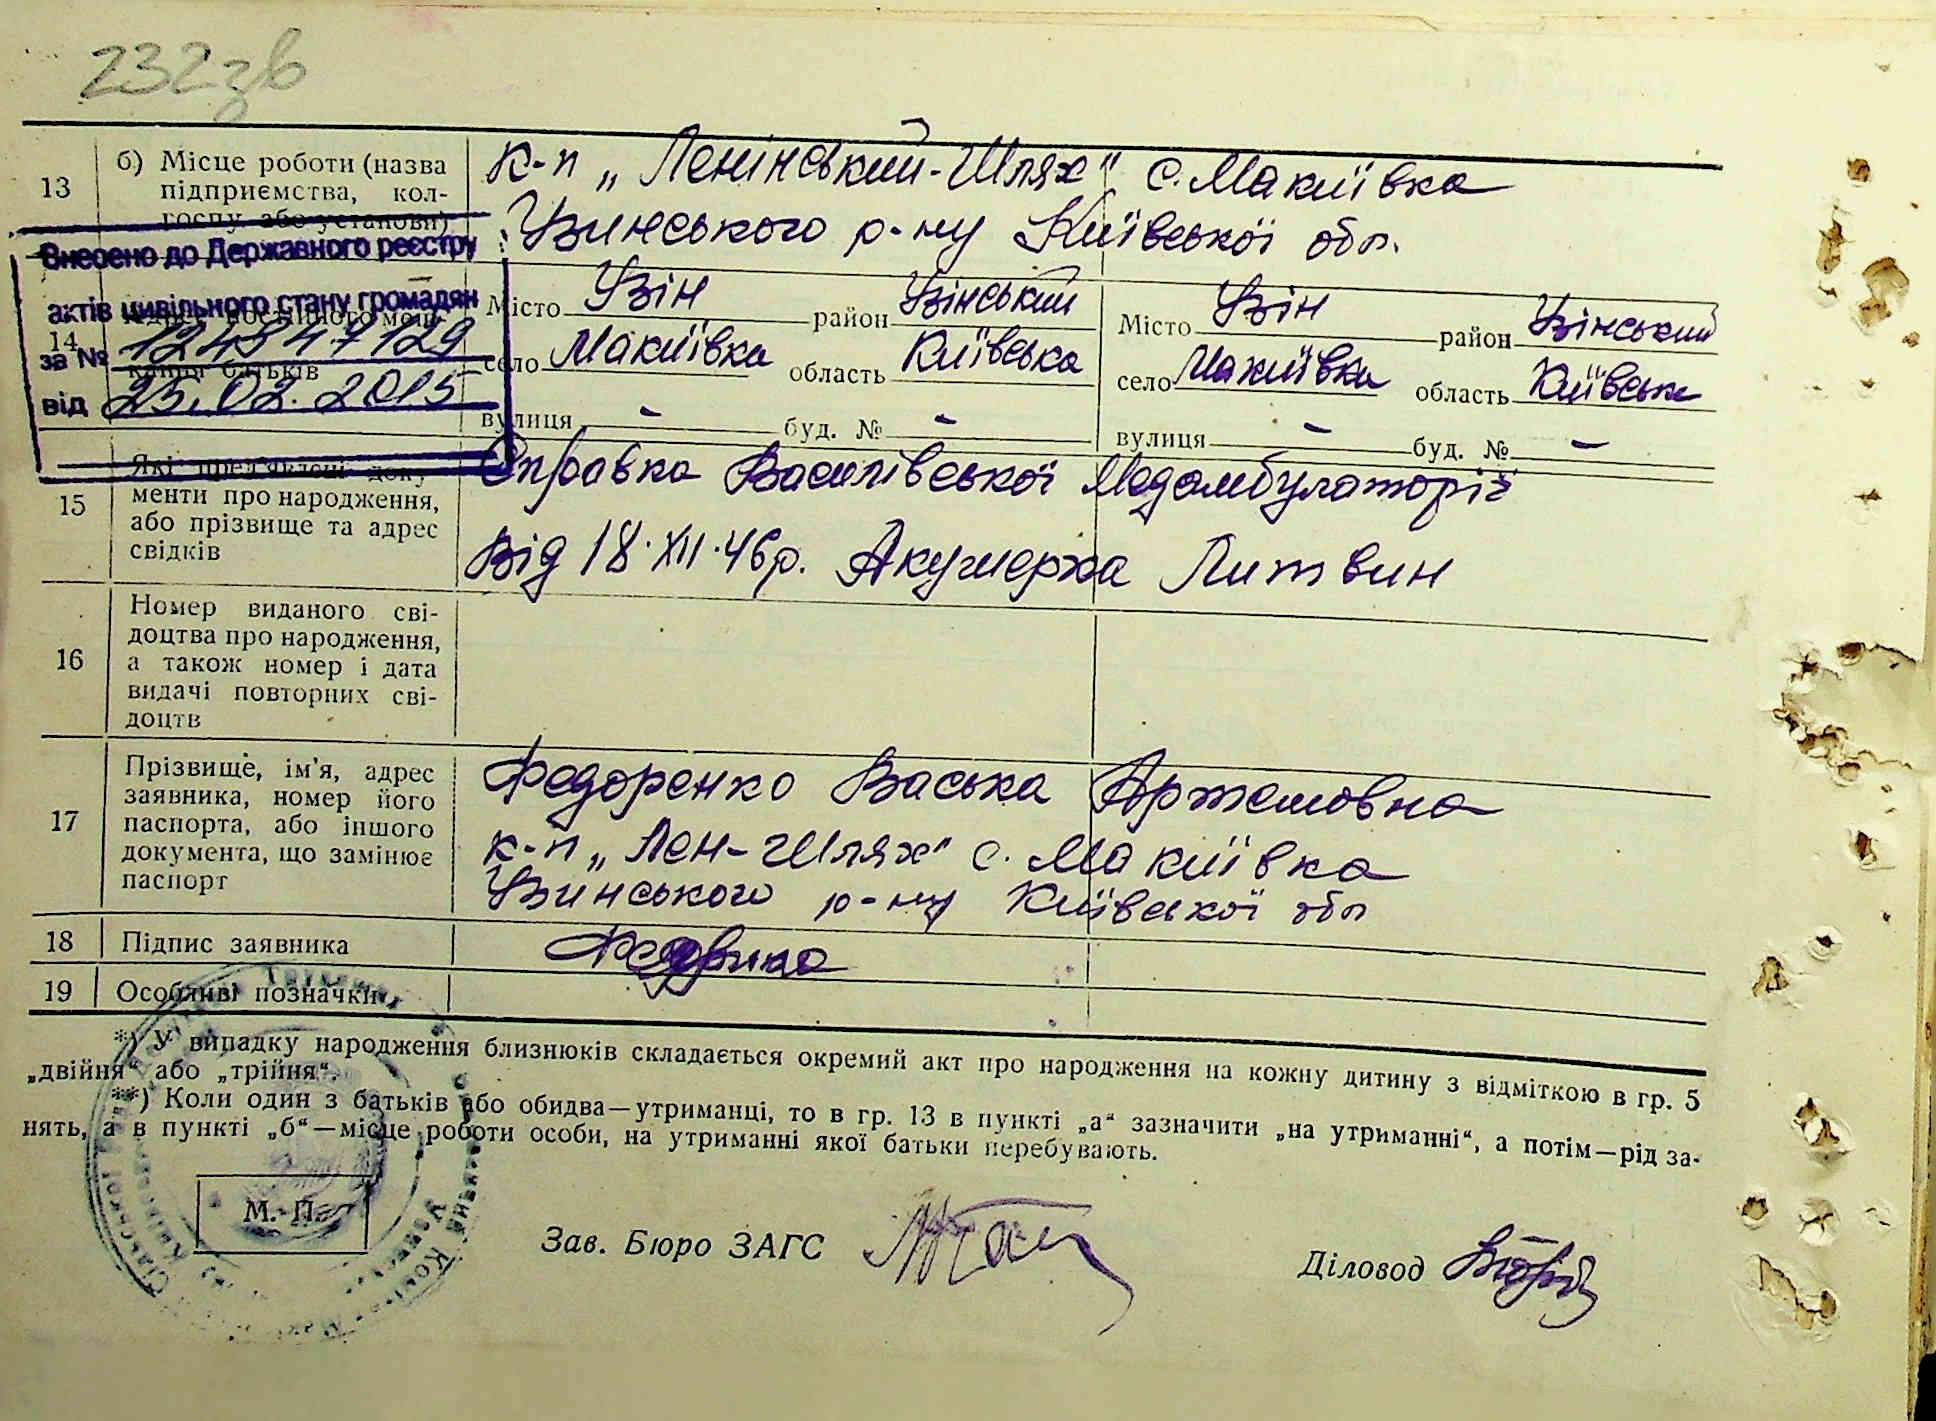 232зв
13 б) Місце роботи (назва підприємства, колгоспу або установи)
к-п „Ленінський-Шлях" с. Макиївка
Узинського р-ну Київської обл.
Внесено до Державного реєстру
актів цивільного стану громадян
за №
від 25.02.2015
14
Місто Узін район Узінський
село Макиївка область Київська
вулиця - буд. № -
Місто Узін район Узінський
село Макиївка область Київськ
вулиця - буд. № -
15 Які пред'явлені документи про народження, або прізвище та адрес свідків
Справка Василівської Медамбулаторії
Від 18·XII·46р. Акушерка Литвин
16 Номер виданого сві-
доцтва про народження,
а також номер і дата
видачі повторних сві-
доцтв
17 Прізвище, ім'я, адрес
заявника, номер його
паспорта, або іншого
документа, що замінює
паспорт
Федоренко Васька Артемовна
к-п „Лен-Шлях" с. Макиївка
Узинського р-ну Київської обл
18 Підпис заявника
19 Особливі позначки
*) У випадку народження близнюків складається окремий акт про народження на кожну дитину з відміткою в гр. 5
„двійня" або „трійня".
**) Коли один з батьків або обидва—утриманці, то в гр. 13 в пункті „а" зазначити „на утриманні", а потім—рід за-
нять, а в пункті „б"—місце роботи особи, на утриманні якої батьки перебувають.
М. П.
Зав. Бюро ЗАГС
Діловод